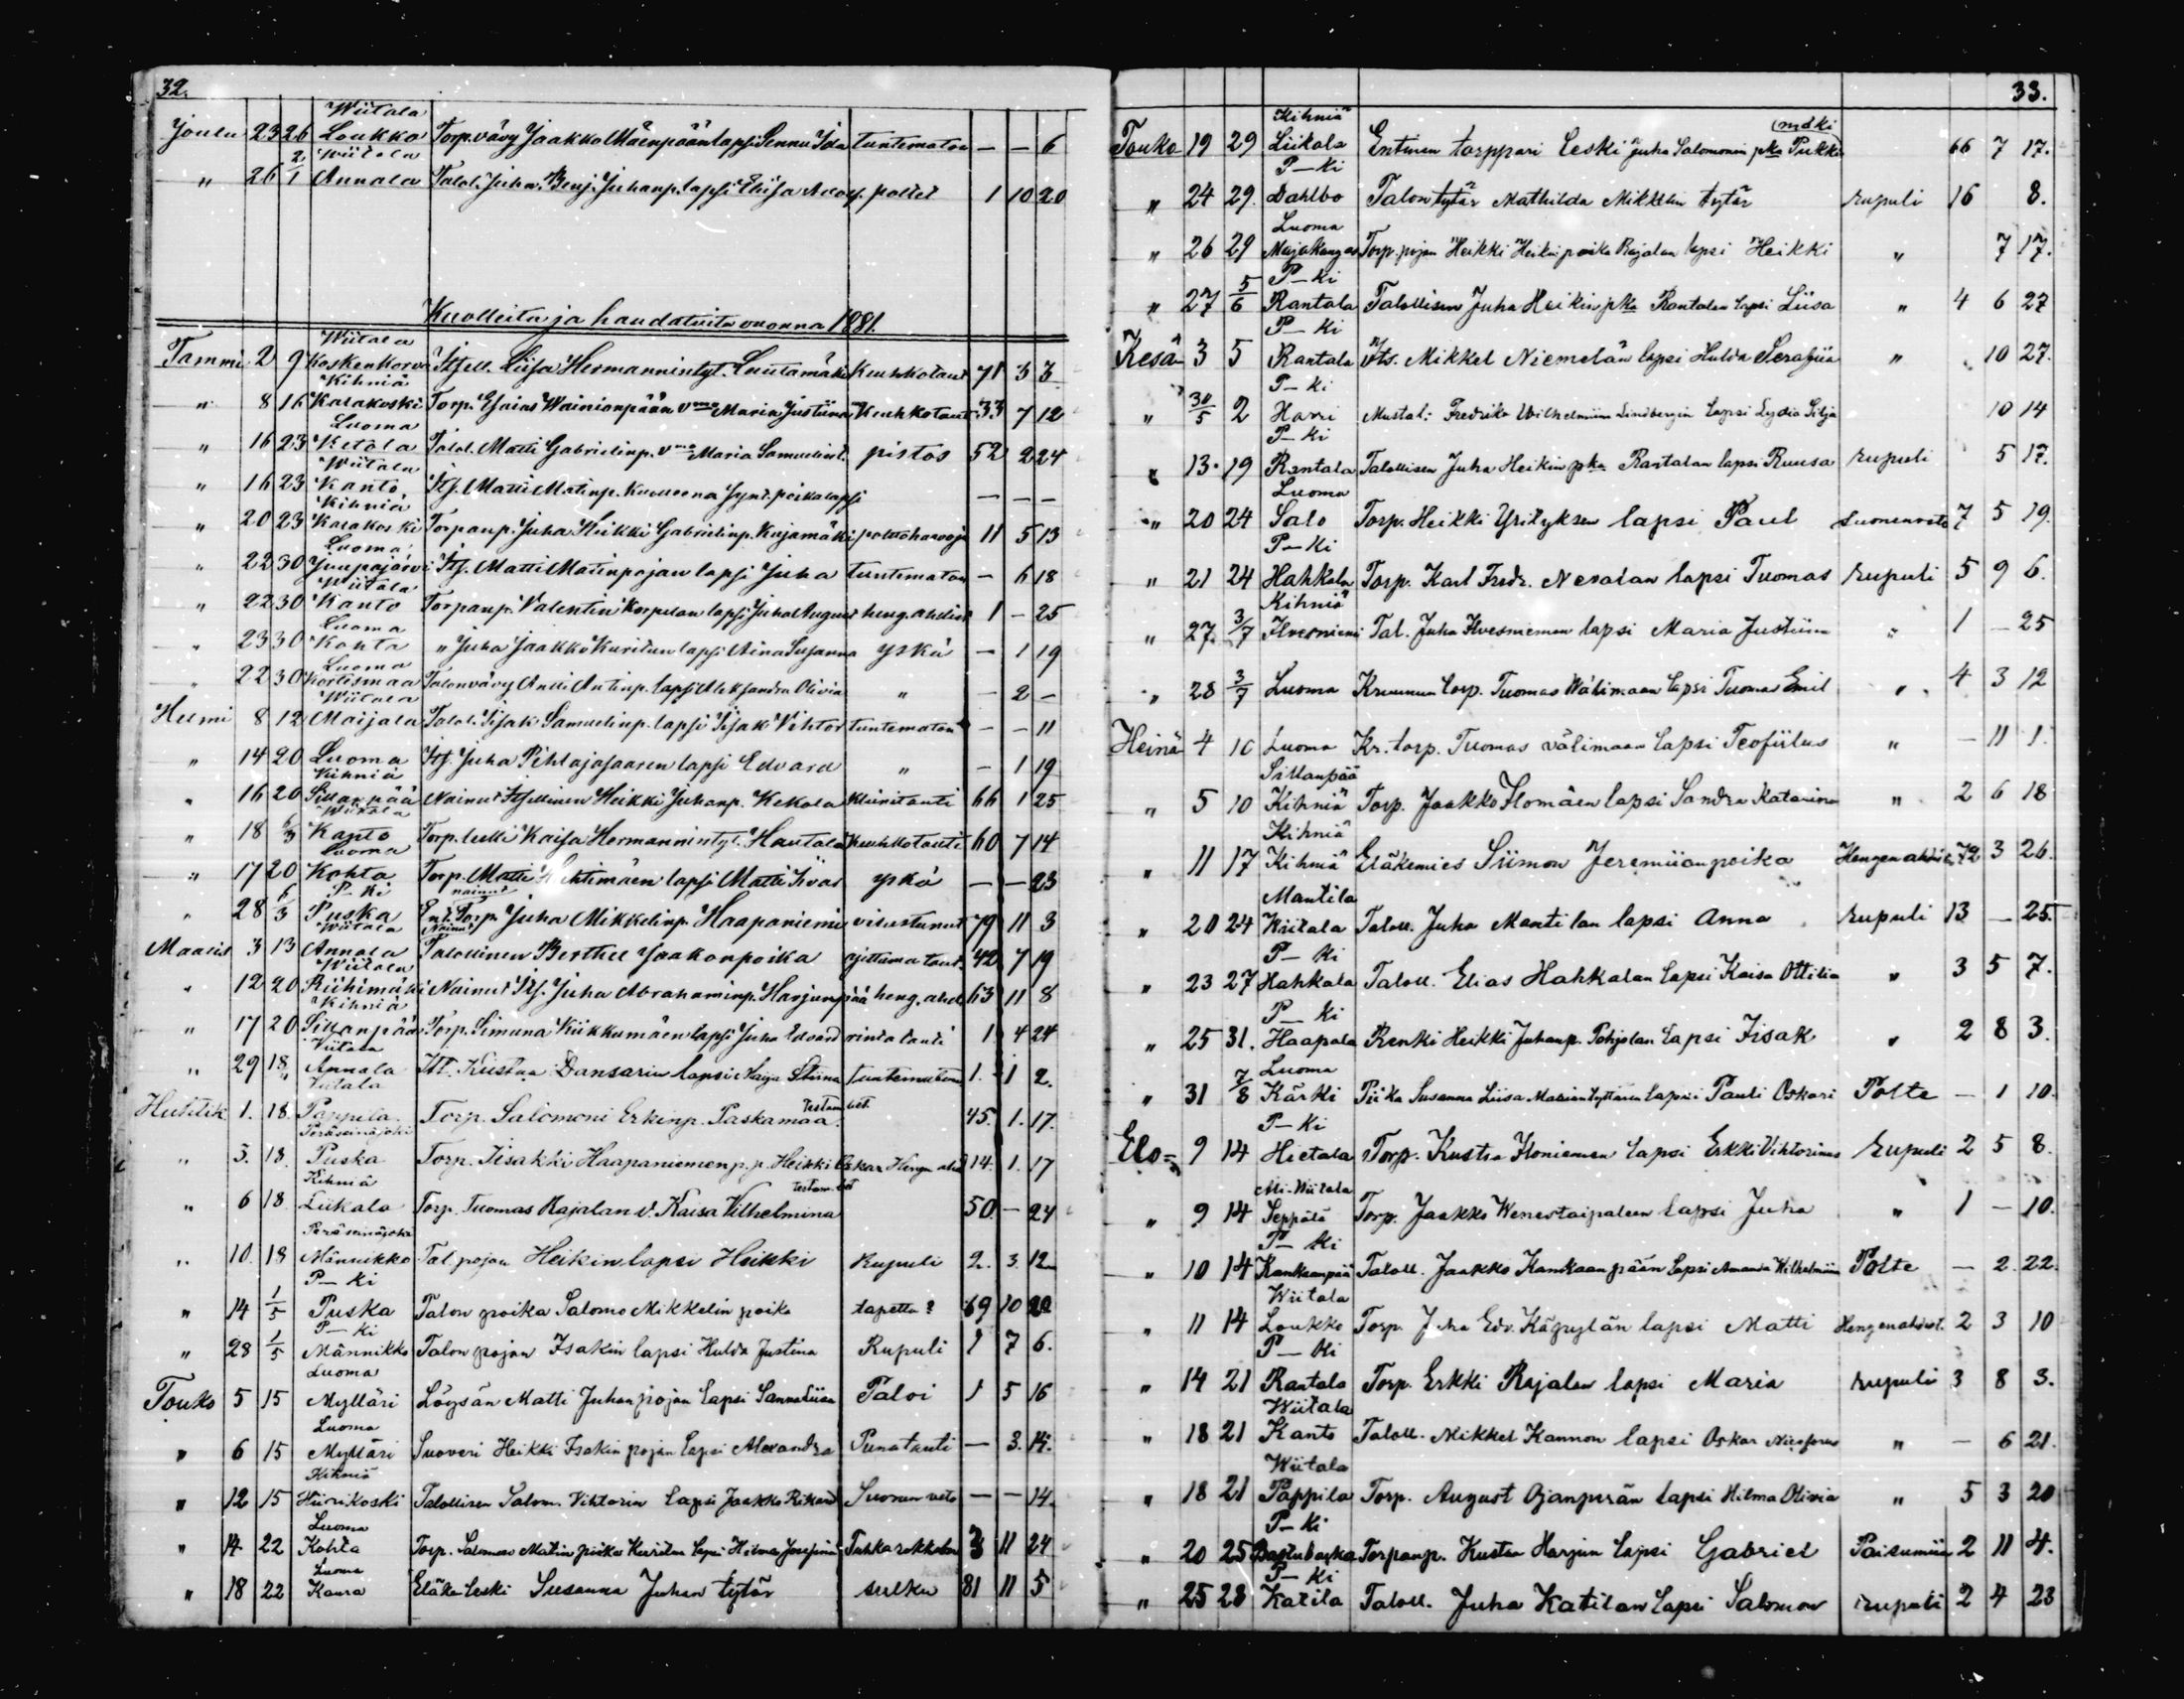 32.
Wiitala
Joulu 23 26 Loukko Torp.vävy Jaakko Mäenpään lapsi Sennu Ida tuntematon — — 6
Wiitala
" 26 2/1 Annala Talol. Juha Benj. Juhanp. lapsi Eliisa Adolf. poltet 1 10 20
Kuolleita ja haudatuita vuonna 1881.
Wiitala
Tammi 2 9 Koskenkorva Itsell. Liisa Hermannintyt. Luutamäki Keuhkotaut 71 3 3
Kihniä
" 8 16 Karakoski Torp. Esaias Wainionpään vmo Maria Justiina Keuhkotaut 33 7 12
Luoma
" 16 23 Ketola Talol. Matti Gabrielinp. vmo Maria Samuelint. pistos 52 2 24
Wiitala
" 16 23 Kanto Itj. Matti Matinp. kuolleena synt. poikalapsi — — —
Kihniä
" 20 23 Karakoski Torpanp. Juha Heikki Gabrielinp. Kujamäki polttohaavoja 11 5 13
Luoma
" 22 30 Juupajärvi Itj. Matti Matinpojan lapsi Juha tuntematon — 6 18
Wiitala
" 22 30 Kanto Torpanp. Valentin Korpelan lapsi Juha August heng. ahdist 1 — 25
Luoma
" 23 30 Kohta " Juha Jaakko Kuritun lapsi Aina Susanna yskä — 1 19
Luoma
" 22 30 Kortesmaa Talonvävy Antti Antinp. lapsi Aleksandra Olivia " — 2 —
Wiitala
Helmi 8 12 Maijala Talol. Iisak Samuelinp. lapsi Iisak Vihtor tuntematon — — 11
" 14 20 Luoma Itj. Juha Pihlajasaaren lapsi Edvard " — 1 19
Kihniä
" 16 20 Sillanpää Nainut Itsellinen Heikki Juhanp. Kekola kliinitauti 66 1 25
Wiitala
" 18 6/3 Kanto Torp. leski Kaisa Hermannintyt. Hautala Keuhkotauti 60 7 14
Luoma
" 17 20 Kohta Torp. Matti Lehtimäen lapsi Matti Iivar yskä — — 23
P—ki nainut
" 28 6/3 Puska Ent. Torp. Juha Mikkelinp. Haapaniemi visustunut 79 11 3
Wiitala Nainut
Maalis 3 13 Annala Talollinen Berthel Jaakonpoika ajettuma taut. 42 7 19
Wiitala
" 12 20 Riihimäki Nainut Itj. Juha Abrahaminp. Harjunpää heng. ahd 63 11 8
Kihniä
" 17 20 Sillanpää Torp. Simuna Kiikkumäen lapsi Juha Edvard rintatauti 1 4 24
Viitala
" 29 18/" Annala Itt. Kustaa Dansarin lapsi Maija Stiina tuntematon 1. 1 2.
Viitala
Huhtik 1. 18. Pappila Torp. Salomoni Erkinp. Paskamaa. 45. 1. 17.
Peräseinäjoki
" 3. 18. Puska Torp. Iisakki Haapaniemen p. p. Heikki Oskar Hengen ahd 14. 1. 17
Kihniä
" 6 18 Liikala Torp. Tuomas Rajalan v. Kaisa Vilhelmina 50 — 24
Peräseinäjoki
" 10. 18 Männikko Tal. pojan Heikin lapsi Heikki Rupuli 2. 3. 12
P—ki
" 14 1/5 Puska Talon poika Salomo Mikkelin poika tapettu? 69 10 20
P—ki
" 28 1/5 Männikko Talon pojan Isakin lapsi Hulda Justina Rupuli 1 7 6.
Luoma
Touko 5 15 Mylläri Löysän Matti Juhan pojan lapsi Sannaliisa Paloi 1 5 16
Luoma
" 6 15 Mylläri Suoveri Heikki Isakin pojan lapsi Alexandra Punatauti — 3. 14.
Kihniä
" 12 15 Hiirikoski Talollisen Salom. Vihtorin lapsi Jaakko Rikard Suonen veto — — 14.
Luoma
" 14 22 Kohta Torp. Salomon Matin poika Kuritun lapsi Hilma Josefiina Tuhkarokkoon 3 11 24
Luoma
" 18 22 Kaura Eläke leski Susanna Juhan tytär sulku 81 11 5
33.
Kihniä (mdki
Touko 19 29 Liikala Entinen torppari leski Juha Salomonin pka Pukki 66 7 17.
P—ki
" 24 29. Dahlbo Talon tytär Mathilda Mikkelin tytär rupuli 16 8.
Luoma
" 26 29 Majakangas Torp. pojan Heikki Heikin poika Rajalan lapsi Heikki " 7 17.
P—ki
" 27 5/6 Rantala Talollisen Juha Heikin pka Rantalan lapsi Liisa " 4 6 27
P—ki
Kesä 3 5 Rantala Its. Mikkel Niemelän lapsi Hulda Serafiia " 10 27.
P—ki
" 30/5 2 Harri Mustal: Fredrika Wilhelmiina Lindbergin lapsi Lydia Silja 10 14
P—ki
" 13. 19 Rantala Talollisen Juha Heikin pka Rantalan lapsi Ruusa rupuli 5 17.
Luoma
" 20 24 Salo Torp. Heikki Yrityksen lapsi Paul suonenveto 7 5 19.
P—ki
" 21 24 Hahkala Torp. Karl Fredr. Nevalan lapsi Tuomas rupuli 5 9 6.
Kihniä
" 27. 3/7 Ilvesniemi Tal. Juha Ilvesniemen lapsi Maria Justiina " 1 — 25
" 28 3/7 Luoma Kruunun torp. Tuomas Wälimaan lapsi Tuomas Emil " 4 3 12
Heinä 4 10 Luoma Kr. torp. Tuomas välimaan lapsi Teofiilus " — 11 1.
Sillanpää
" 5 10 Kihniä Torp. Jaakko Ilomäen lapsi Sandra Katarina " 2 6 18
Kihniä
" 11 17 Kihniä Eläkemies Siimon Jeremiianpoika Hengenahdis. 72 3 26.
Mantila
" 20 24 Wiitala Taloll. Juha Mantilan lapsi Anna rupuli 13 — 25.
P—ki
" 23 27 Hahkala Taloll. Elias Hahkalan lapsi Kaisa Ottilia " 3 5 7.
P—ki
" 25 31. Haapala Renki Heikki Juhanp. Pohjolan lapsi Iisak " 2 8 3.
Luoma
" 31 7/8 Kärki Piika Susanna Liisa Marian tyttären lapsi Pauli Oskari Polte — 1 10.
P—ki
Elo= 9 14 Hietala Torp. Kustaa Iloniemen lapsi Erkki Vihtorinus rupuli 2 5 8.
Ali-Wiitala
" 9 14 Seppälä Torp. Jaakko Wenestaipaleen lapsi Juha " 1 — 10.
P—ki
" 10 14 Kankaanpää Taloll. Jaakko Kankaanpään lapsi Amanda Wilhelmiina Polte — 2. 22.
Wiitala
" 11 14 Loukko Torp. Juha Edv. Käpylän lapsi Matti Hengenahdist. 2 3 10
P—ki
" 14 21 Rantala Torp. Erkki Rajalan lapsi Maria rupuli 3 8 3.
Wiitala
" 18 21 Kanto Taloll. Mikkel Kannon lapsi Oskar Niceforus " — 6 21.
Wiitala
" 18 21 Pappila Torp. August Ojanperän lapsi Hilma Olivia " 5 3 20
P—ki
" 20 25 Torpanp. Kustaa Harjun lapsi Gabriel Paisumiin 2 11 4.
P—ki
" 25 28 Katila Taloll. Juha Katilan lapsi Salomon rupuli 2 4 23